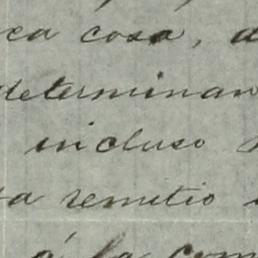 ca cosa, d
determinan
incluso
ta remitio
á la com